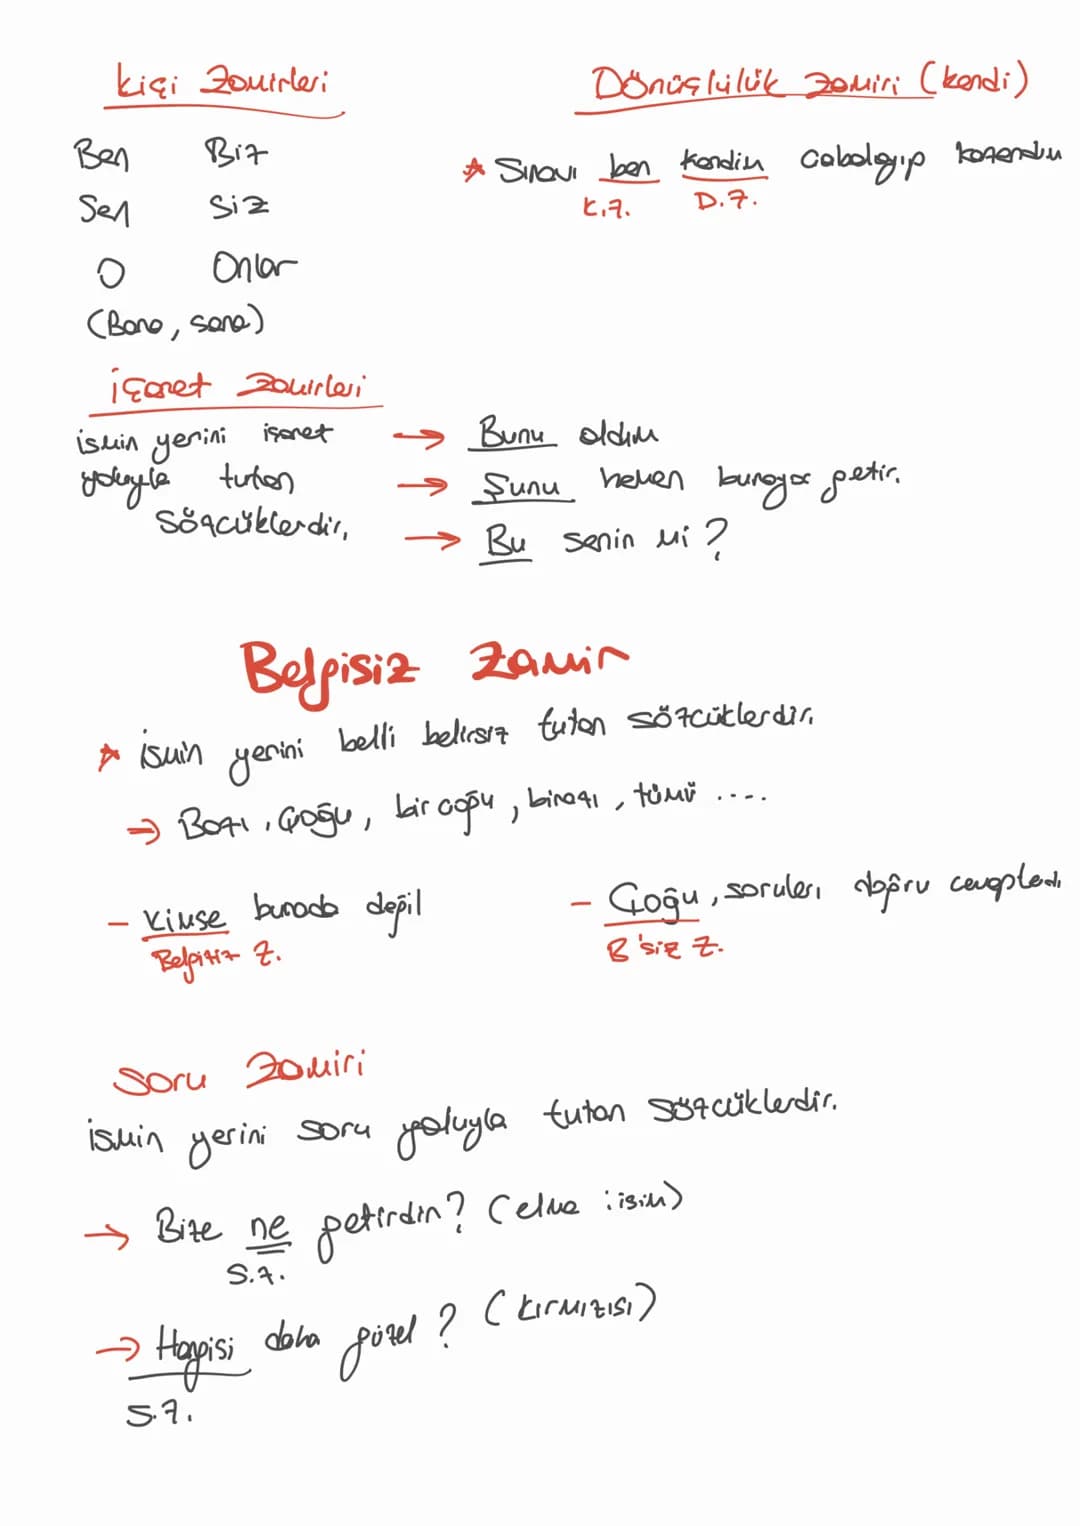 Kişi Zamirleri
Ben Biz
Sen Siz
O Onlar
(Bana, sana)
Dönüşlülük zamiri (kendi)
★ Sınavı ben kendim çabalayıp kazandım
K.Z. D.Z.
işaret zamirleri
ismin yerini işaret
yoluyla tutan
sözcüklerdir.
→ Bunu aldım
→ Şunu hemen buraya getir.
→ Bu senin mi?
Belgisiz Zamir
★ ismin yerini belli belirsiz tutan sözcüklerdir.
→ Bazı, Çoğu, bir çoğu, birazı, tümü ....
- Kimse burada değil
Belgisiz Z.
- Çoğu, soruları doğru cevapladı
B'siz Z.
Soru Zamiri
ismin yerini soru yoluyla tutan sözcüklerdir.
→ Bize ne getirdin? (elma : isim)
S.Z.
→ Hangisi daha güzel? (Kırmızısı)
S.Z.